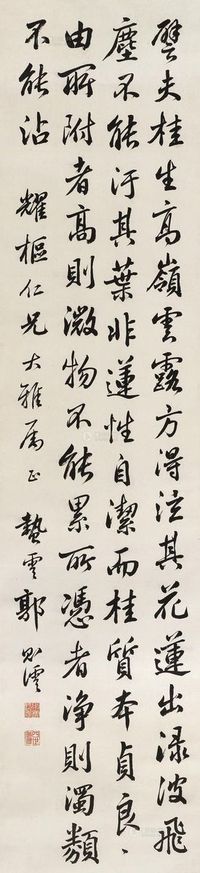 譬夫桂生高嶺雲露方得泫其花蓮出渌波飛
塵不能汙其葉非蓮性自潔而桂質本貞良、
由所附者高則微物不能累所憑者淨則濁類
不能沾
耀樞仁兄大雅屬正 蟄雲郭則澐